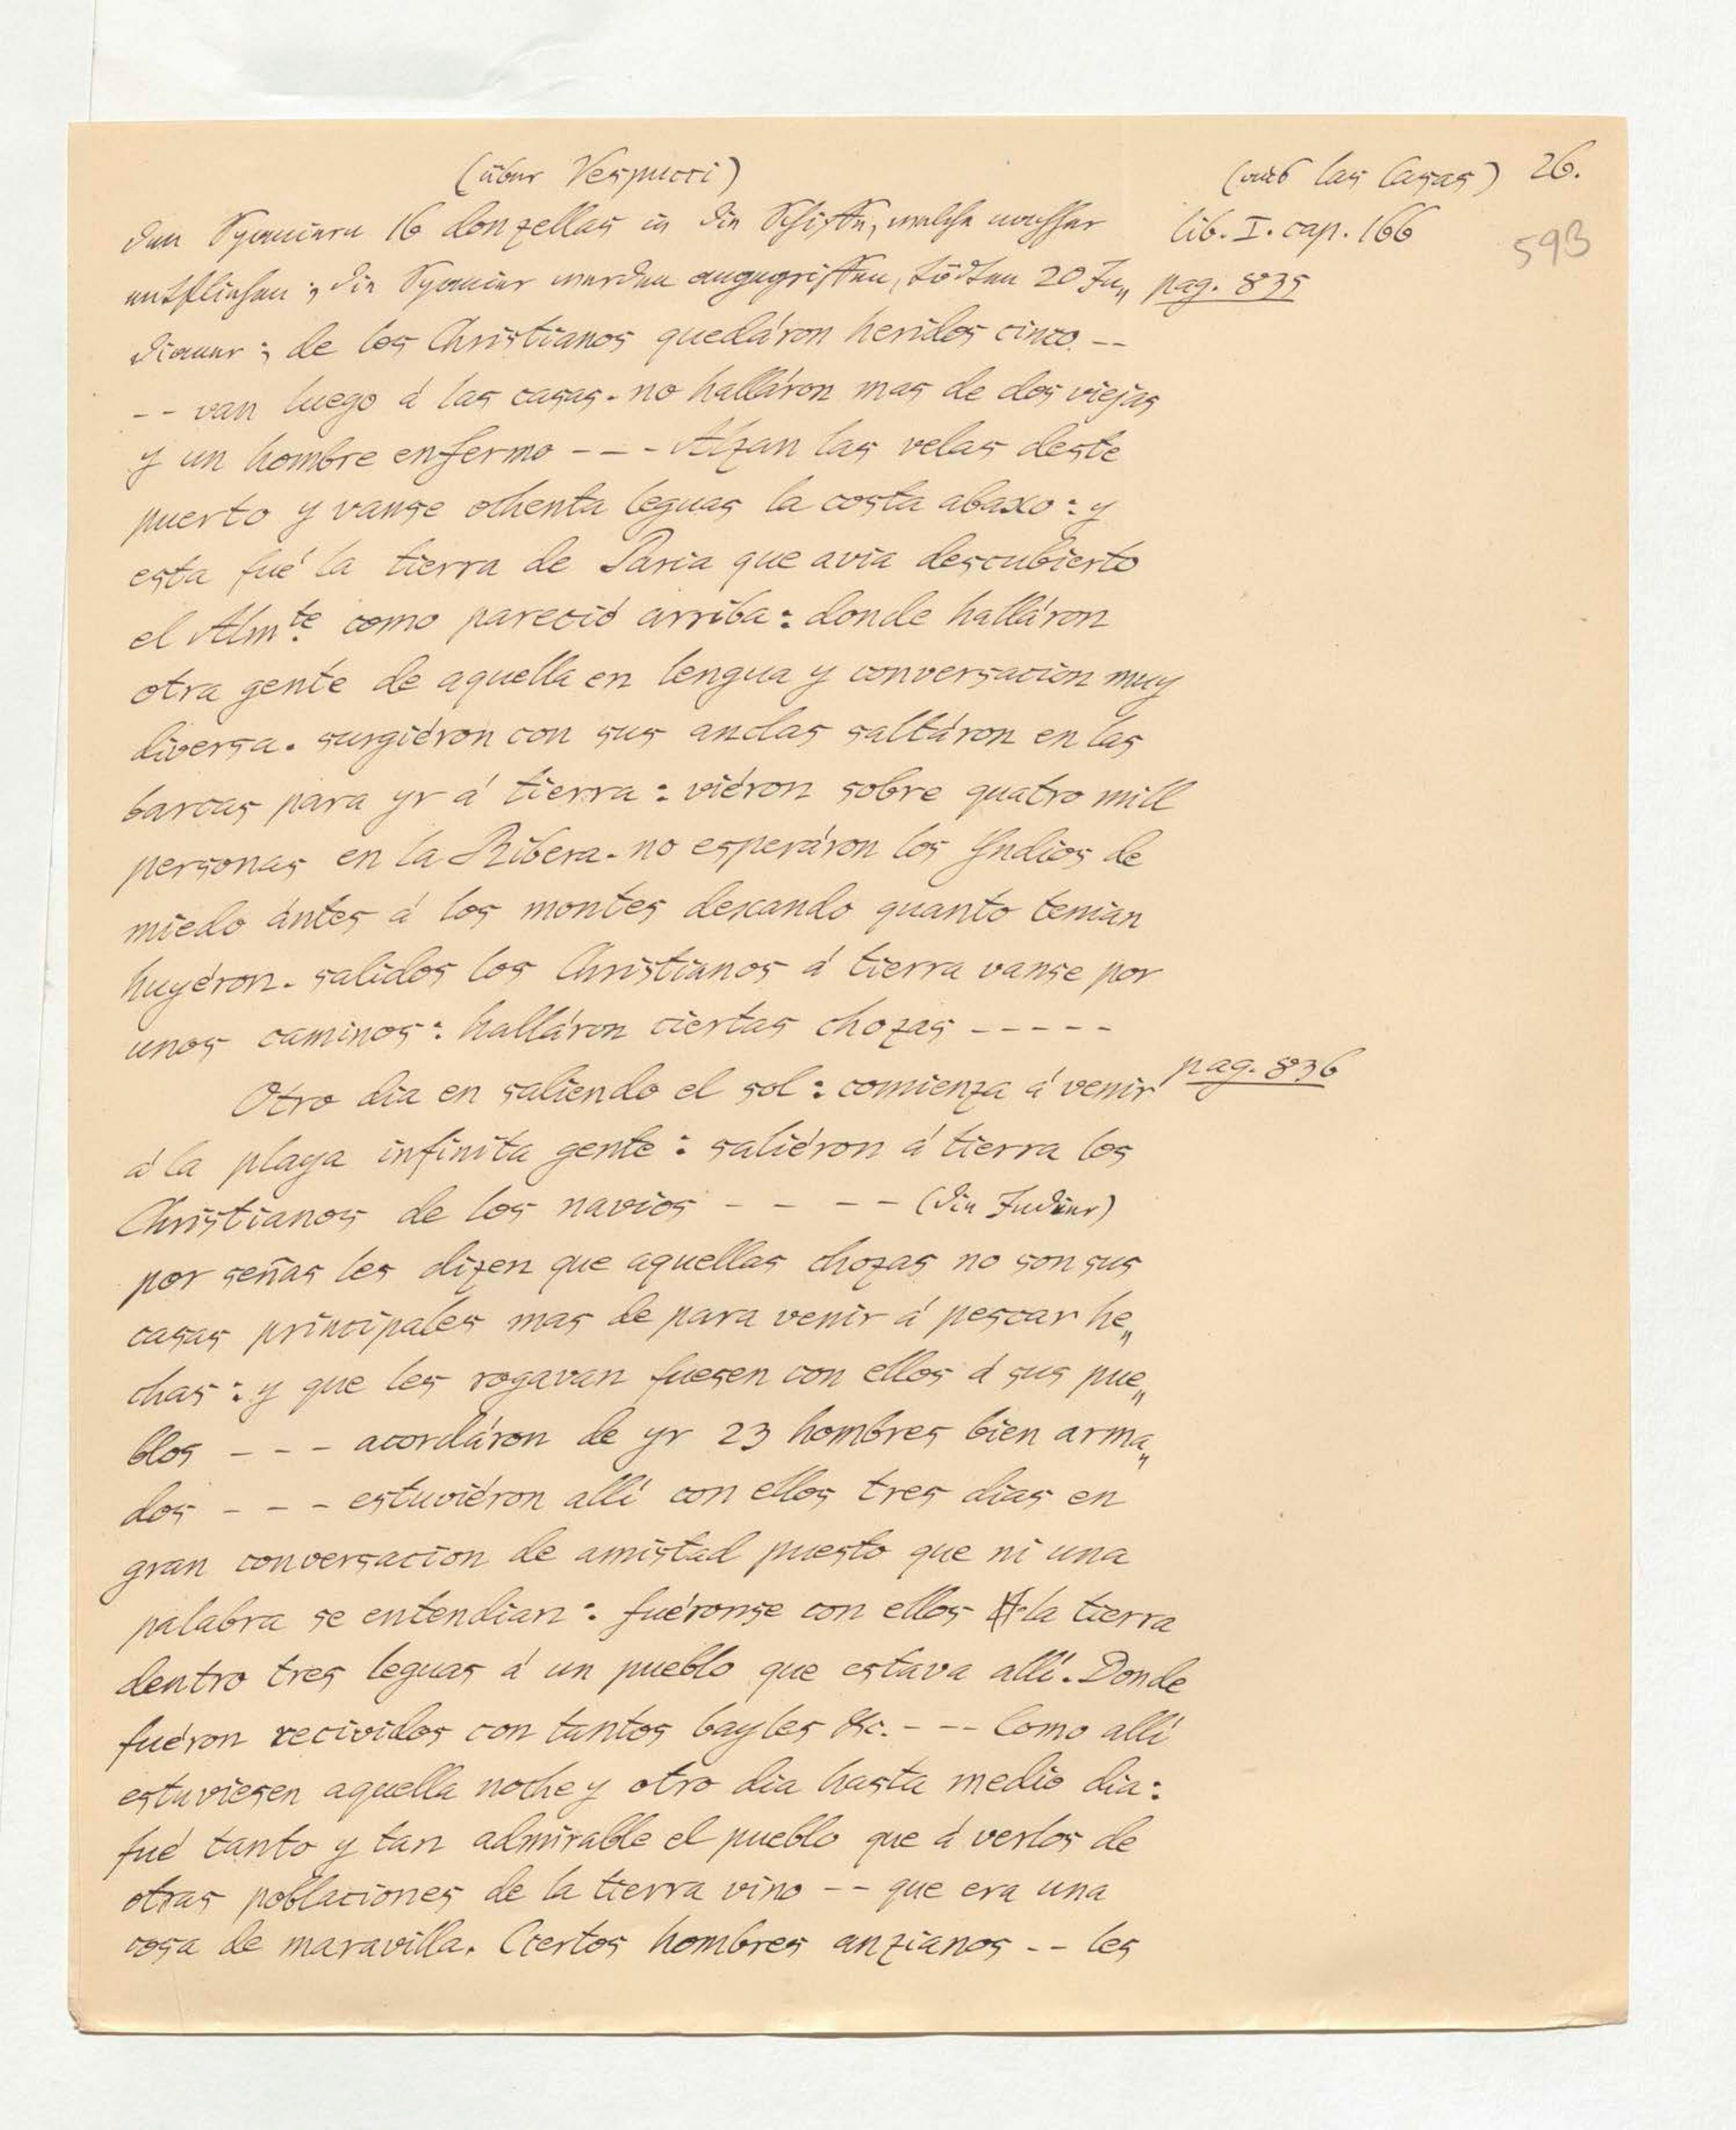 (über Vespucci)
(aus las Casas) 26.
593
den Spaniern 16 donzellas in die Schiffe, welche nachher
lib. I. cap. 166
entfliehen; die Spanier werden angegriffen, tödten 20 In„
pag. 835
dianer; de los Christianos quedáron heridos cinco --
-- van luego á las casas. no halláron mas de dos viejas
y un hombre enfermo --- Alzan las velas deste
puerto y vanse ochenta leguas la costa abaxo: y
esta fué la tierra de Paria que avia descubierto
el Almte. como pareció arriba: donde halláron
otra gente de aquella en lengua y conversacion muy
diversa. surgiéron con sus anclas saltáron en las
barcas para yr á tierra: viéron sobre quatro mill
personas en la Ribera. no esperáron los Yndios de
miedo ántes á los montes dexando quanto tenian
huyéron. salidos los Christianos á tierra vanse por
unos caminos: halláron ciertas chozas -----
Otro dia en saliendo el sol: comienza á venir
pag. 836
á la playa infinita gente: saliéron á tierra los
Christianos de los navios - - - - (die Indier)
por señas les dizen que aquellas chozas no son sus
casas principales mas de para venir á pescar he„
chas: y que les rogavan fuesen con ellos á sus pue„
blos - - - acordáron de yr 23 hombres bien arma„
dos - - - estuviéron allí con ellos tres dias en
gran conversacion de amistad puesto que ni una
palabra se entendian: fuéronse con ellos la tierra
dentro tres leguas á un pueblo que estava allí. Donde
fuéron recividos con tantos bayles &c. --- Como allí
estuviesen aquella noche y otro dia hasta medio dia:
fué tanto y tan admirable el pueblo que á verlos de
otras poblaciones de la tierra vino -- que era una
cosa de maravilla. Ciertos hombres anzianos -- les